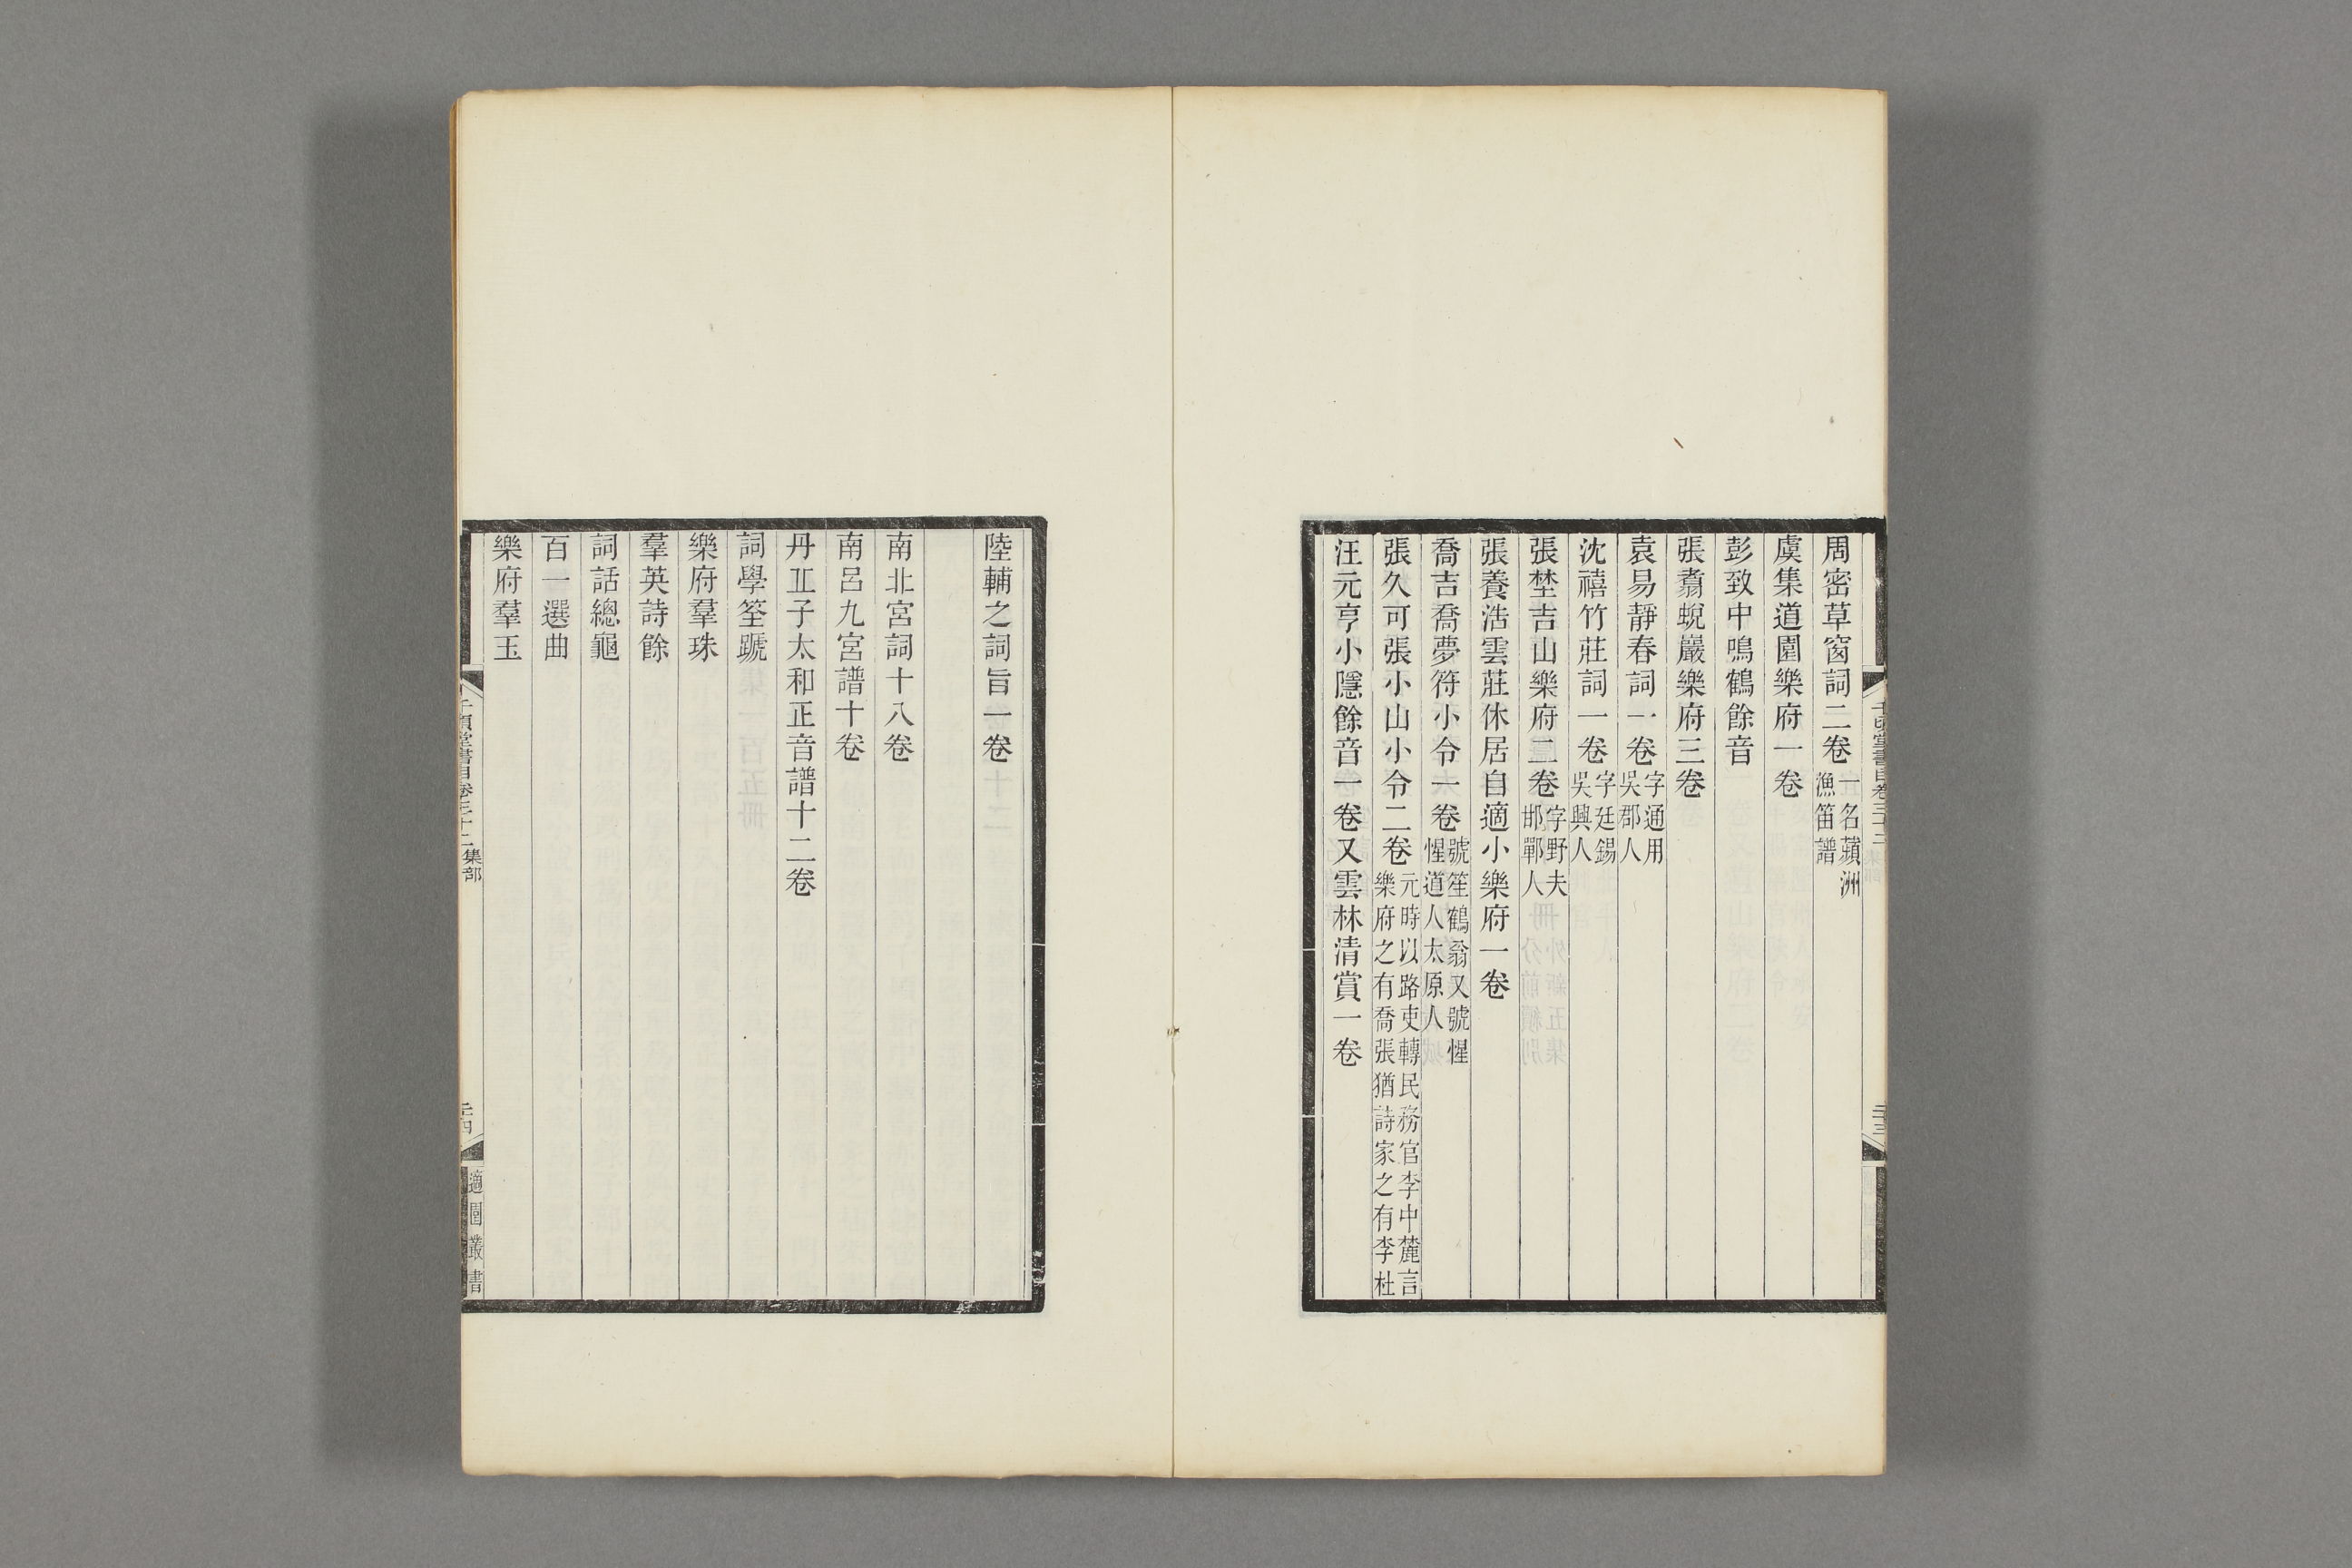 周密草窗詞二卷一名蘋洲漁笛譜
虞集道園樂府一卷
彭致中鳴鶴餘音
張翥蛻巖樂府三卷
袁易靜春詞一卷字通用吳郡人
沈禧竹莊詞一卷字廷錫吳興人
張埜古山樂府二卷字野夫邯鄲人
張養浩雲莊休居自適小樂府一卷
喬吉喬夢符小令一卷號笙鶴翁又號惺惺道人太原人
張久可張小山小令二卷元時以路吏轉民務官李中麓言樂府之有喬張猶詩家之有李杜
汪元亨小隱餘音一卷又雲林清賞一卷
陸輔之詞旨一卷
南北宮詞十八卷
南呂九宮譜十卷
丹丠子太和正音譜十二卷
詞學筌蹏
樂府羣珠
羣英詩餘
詞話總龜
百一選曲
樂府羣玉
千頃堂書目卷三十二集部
二十四
適園叢書